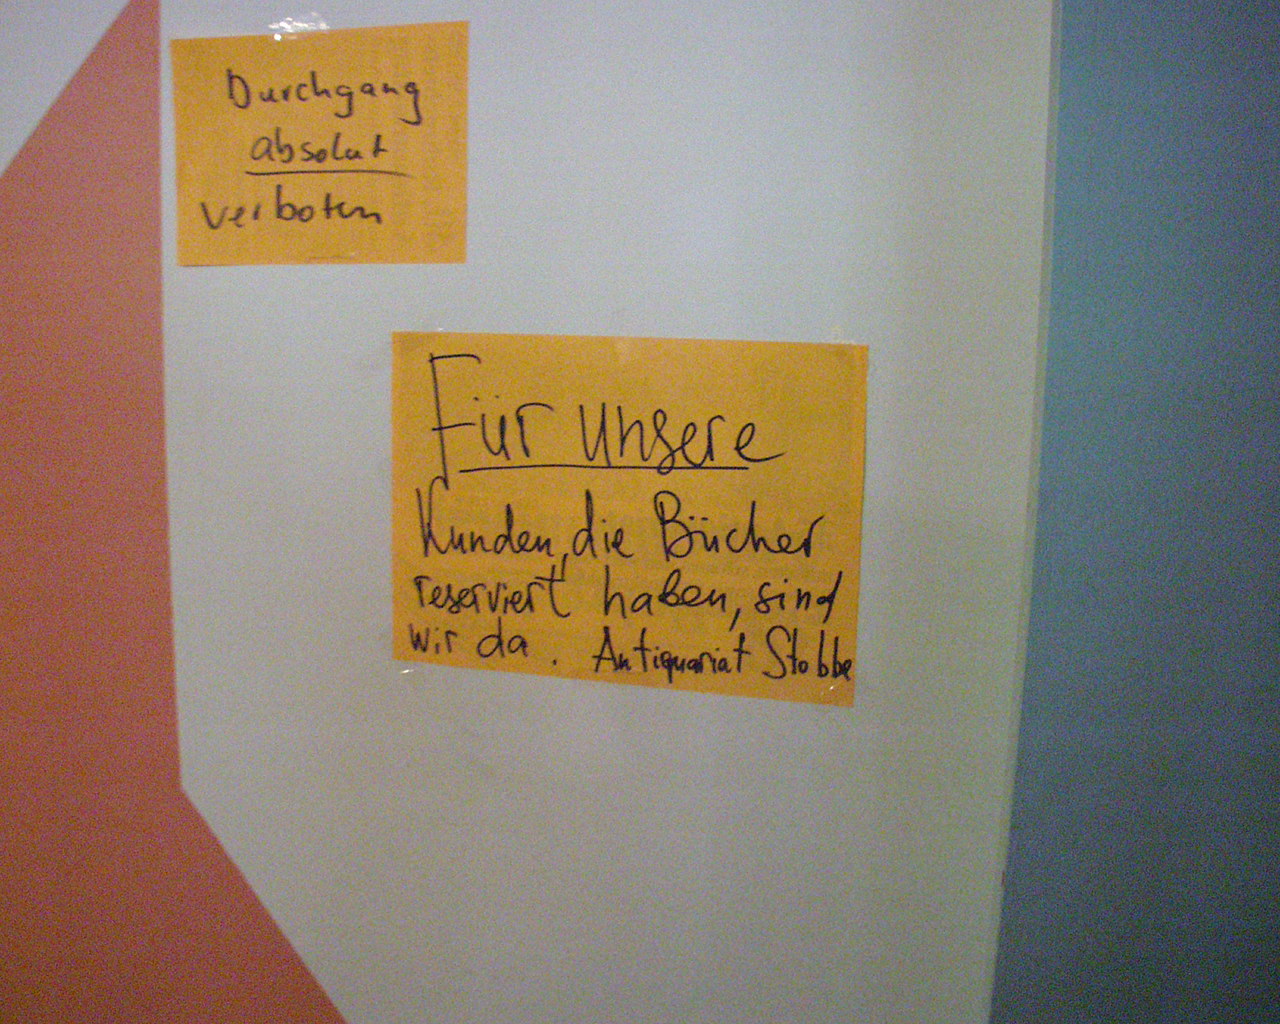 Durchgang
absolut
verboten
Für unsere
Kunden, die Bücher
reserviert haben, sind
wir da. Antiquariat Stobbe